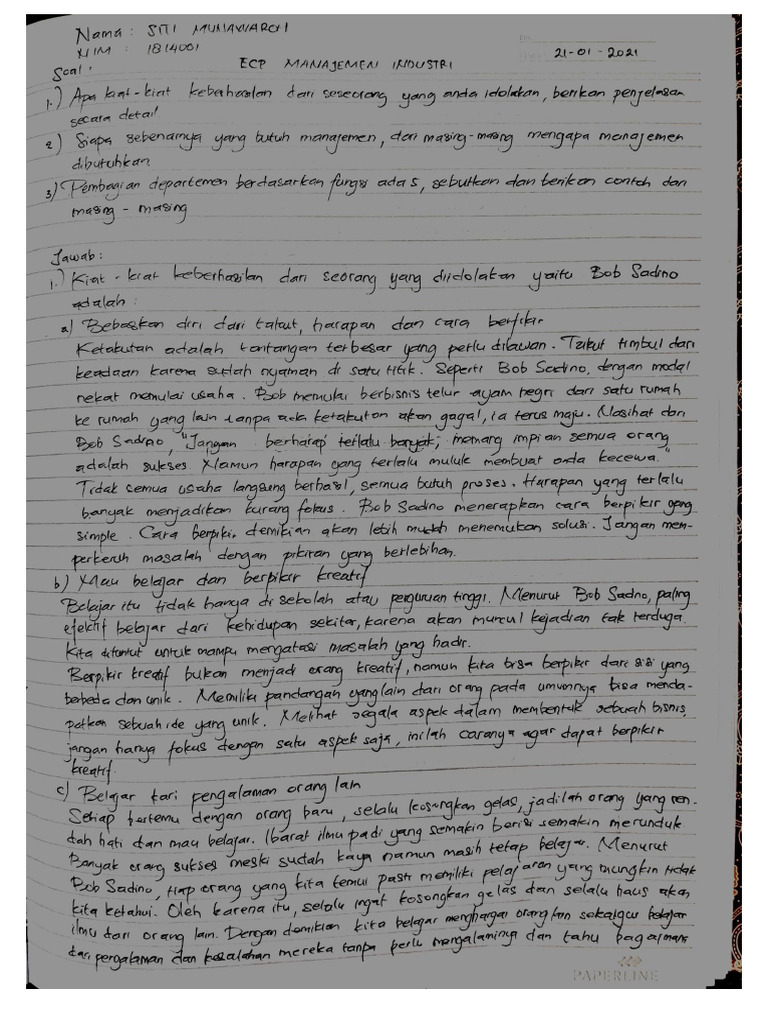 Nama : SITI MUNAWAROH
NIM : 1814001
21-01-2021
Soal :
ECP MANAJEMEN INDUSTRI
1.) Apa kiat-kiat keberhasilan dari seseorang yang anda idolakan, berikan penjelasan
secara detail
2) Siapa sebenarnya yang butuh manajemen, dari masing-masing mengapa manajemen
dibutuhkan
3) Pembagian departemen berdasarkan fungsi ada 5, sebutkan dan berikan contoh dari
masing - masing
Jawab :
1.) Kiat - kiat keberhasilan dari seorang yang diidolakan yaitu Bob Sadino
adalah :
a) Bebaskan diri dari takut, harapan dan cara berfikir
Ketakutan adalah tantangan terbesar yang perlu dilawan. Takut timbul dari
keadaan karena sudah nyaman di satu titik. Seperti Bob Sadino, dengan modal
nekat memulai usaha. Bob memulai berbisnis telur ayam negri dari satu rumah
ke rumah yang lain tanpa ada ketakutan akan gagal, ia terus maju. Nasihat dari
Bob Sadino, "Jangan berharap terlalu banyak, memang impian semua orang
adalah sukses. Namun harapan yang terlalu muluk membuat anda kecewa."
Tidak semua usaha langsung berhasil, semua butuh proses. Harapan yang terlalu
banyak menjadikan kurang fokus. Bob Sadino menerapkan cara berpikir yang
simple. Cara berpikir demikian akan lebih mudah menemukan solusi. Jangan mem-
perkeruh masalah dengan pikiran yang berlebihan.
b) Mau belajar dan berpikir kreatif
Belajar itu tidak hanya di sekolah atau perguruan tinggi. Menurut Bob Sadino, paling
efektif belajar dari kehidupan sekitar, karena akan muncul kejadian tak terduga.
Kita dituntut untuk mampu mengatasi masalah yang hadir.
Berpikir kreatif bukan menjadi orang kreatif, namun kita bisa berpikir dari sisi yang
berbeda dan unik. Memiliki pandangan yang lain dari orang pada umumnya bisa menda-
patkan sebuah ide yang unik. Melihat segala aspek dalam membentuk sebuah bisnis,
jangan hanya fokus dengan satu aspek saja, inilah caranya agar dapat berpikir
kreatif.
c) Belajar dari pengalaman orang lain
Setiap bertemu dengan orang baru, selalu kosongkan gelas, jadilah orang yang ren-
dah hati dan mau belajar. Ibarat ilmu padi yang semakin berisi semakin merunduk
Banyak orang sukses meski sudah kaya namun masih tetap belajar. Menurut
Bob Sadino, tiap orang yang kita temui pasti memiliki pelajaran yang mungkin tidak
kita ketahui. Oleh karena itu, selalu ingat kosongkan gelas dan selalu haus akan
ilmu dari orang lain. Dengan demikian kita belajar menghargai orang lain sekaligus belajar
dari pengalaman dan kesalahan mereka tanpa perlu mengalaminya dan tahu bagaimana
PAPERLINE